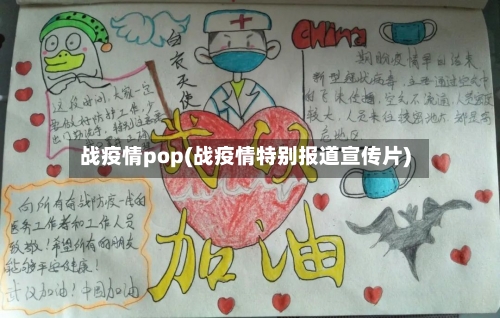 China
白衣天使
期盼疫情早日结束
新型冠状病毒,主要通过空气中
的飞沫传播,空气不流通,人员密度
较大,人员来往
高地区
这段时间,大家一定
要做好防护工作,少
战疫情pop(战疫情特别报道宣传片)
武汉
加油
向所有奋战防疫一线的
医务工作者和工作人员
致敬!希望所有的朋友
能够平安健康!
武汉加油!中国加油